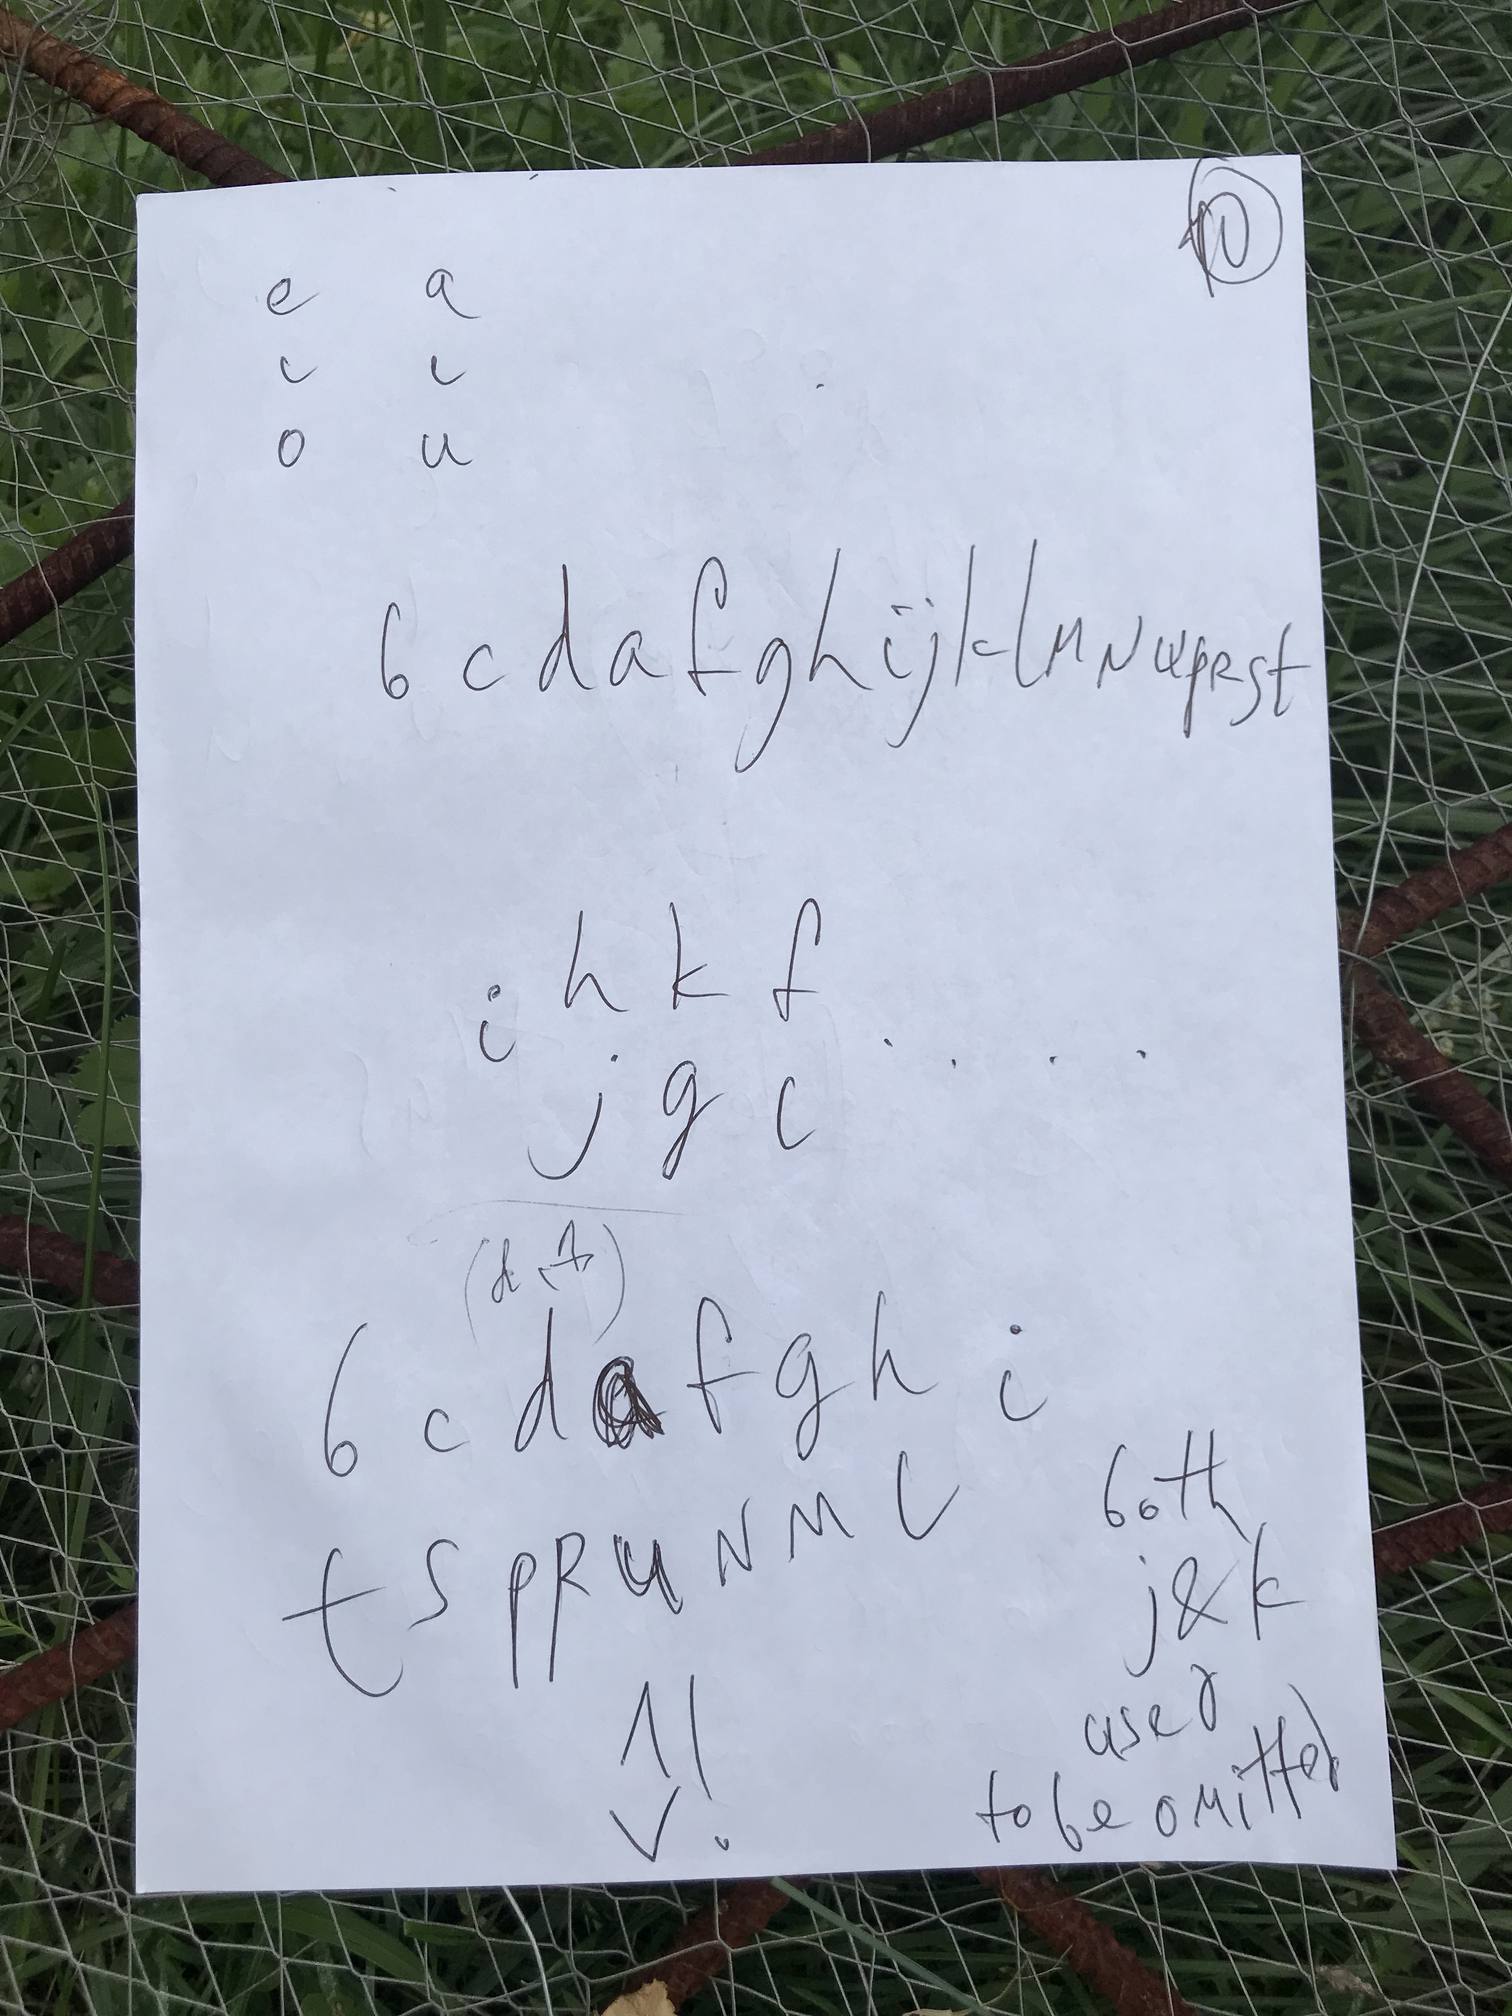 10
e a
i i
o u
b c d a f g h i j k l m n u p r s t
i h k f
j g c . . . .
b c d a f g h i
t s p R u N M l
both
j & k
used
to be omitted